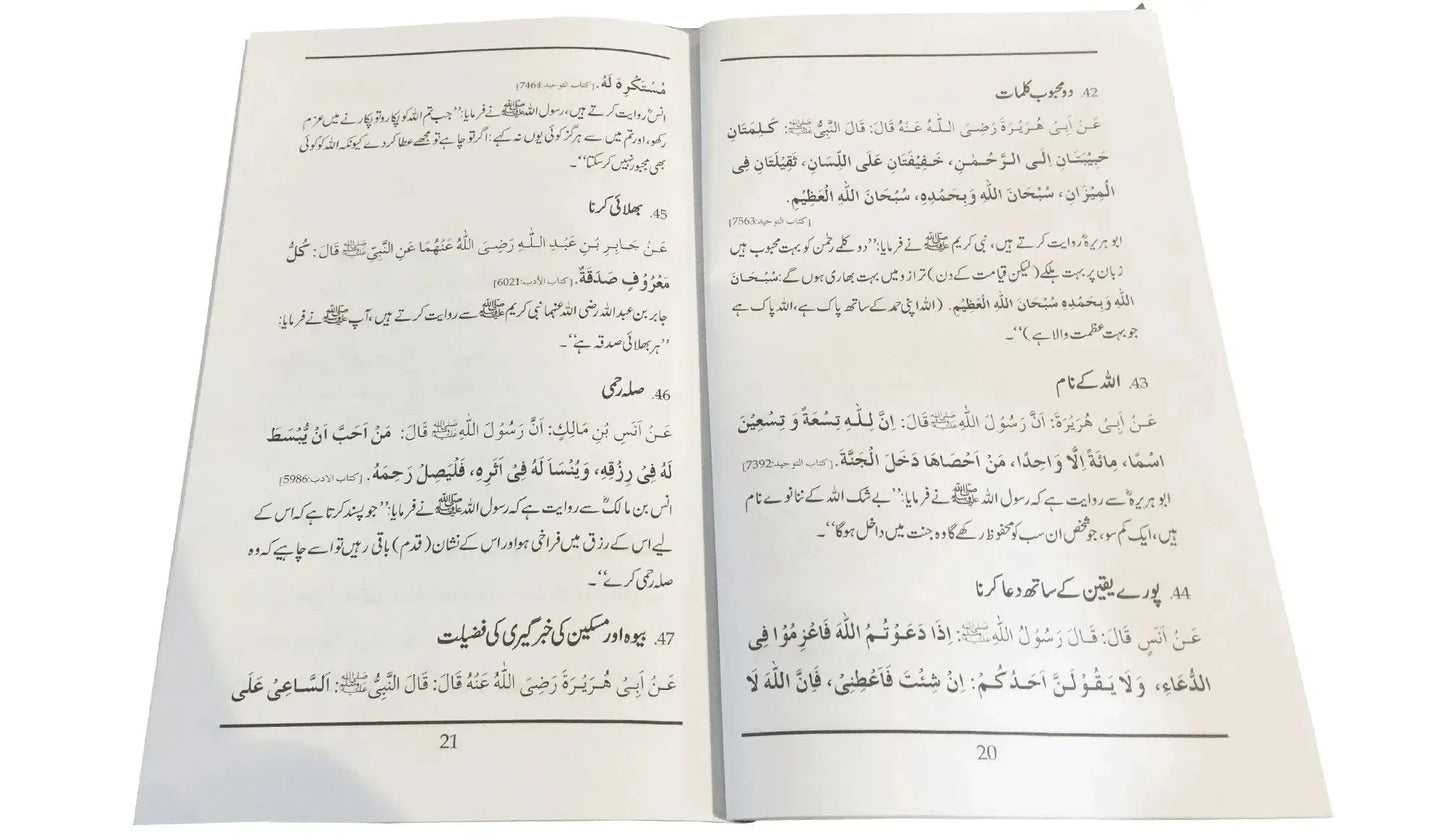 42. دو محبوب کلمات
عَنْ اَبِیْ هُرَيْرَةَ رَضِیَ اللّٰهُ عَنْهُ قَالَ: قَالَ النَّبِیُّ ﷺ: كَلِمَتَانِ
حَبِيْبَتَانِ اِلَی الرَّحْمٰنِ، خَفِيْفَتَانِ عَلَی اللِّسَانِ، ثَقِيْلَتَانِ فِی
الْمِيْزَانِ، سُبْحَانَ اللّٰهِ وَبِحَمْدِهٖ، سُبْحَانَ اللّٰهِ الْعَظِيْمِ.
[کتاب التوحید:7563]
ابو ہریرہؓ روایت کرتے ہیں، نبی کریم ﷺ نے فرمایا: ’’دو کلمے رحمٰن کو بہت محبوب ہیں
زبان پر بہت ہلکے (لیکن قیامت کے دن) ترازو میں بہت بھاری ہوں گے: سُبْحَانَ
اللّٰهِ وَبِحَمْدِهٖ سُبْحَانَ اللّٰهِ الْعَظِيْمِ. (اللہ اپنی حمد کے ساتھ پاک ہے، اللہ پاک ہے
جو بہت عظمت والا ہے)‘‘۔
43. اللہ کے نام
عَنْ اَبِیْ هُرَيْرَةَ: اَنَّ رَسُوْلَ اللّٰهِ ﷺ قَالَ: اِنَّ لِلّٰهِ تِسْعَةً وَّ تِسْعِيْنَ
اسْمًا، مِائَةً اِلَّا وَاحِدًا، مَنْ اَحْصَاهَا دَخَلَ الْجَنَّةَ. [کتاب التوحید:7392]
ابو ہریرہؓ سے روایت ہے کہ رسول اللہ ﷺ نے فرمایا: ’’بے شک اللہ کے ننانوے نام
ہیں، ایک کم سو، جو شخص ان سب کو محفوظ رکھے گا وہ جنت میں داخل ہوگا‘‘۔
44. پورے یقین کے ساتھ دعا کرنا
عَنْ اَنَسٍ قَالَ: قَالَ رَسُوْلُ اللّٰهِ ﷺ: اِذَا دَعَوْتُمُ اللّٰهَ فَاعْزِمُوْا فِی
الدُّعَاءِ، وَلَا يَقُوْلَنَّ اَحَدُكُمْ: اِنْ شِئْتَ فَاَعْطِنِیْ، فَاِنَّ اللّٰهَ لَا
20
مُسْتَكْرِهَ لَهٗ. [کتاب التوحید:7464]
انسؓ روایت کرتے ہیں، رسول اللہ ﷺ نے فرمایا: ’’جب تم اللہ کو پکارو تو پکارنے میں عزم
رکھو، اور تم میں سے ہرگز کوئی یوں نہ کہے: اگر تو چاہے تو مجھے عطا کر دے کیونکہ اللہ کو کوئی
بھی مجبور نہیں کر سکتا‘‘۔
45. بھلائی کرنا
عَنْ جَابِرِ بْنِ عَبْدِ اللّٰهِ رَضِیَ اللّٰهُ عَنْهُمَا عَنِ النَّبِیِّ ﷺ قَالَ: كُلُّ
مَعْرُوْفٍ صَدَقَةٌ. [کتاب الأدب:6021]
جابر بن عبداللہ رضی اللہ عنہما نبی کریم ﷺ سے روایت کرتے ہیں، آپ ﷺ نے فرمایا:
’’ہر بھلائی صدقہ ہے‘‘۔
46. صلہ رحمی
عَنْ اَنَسِ بْنِ مَالِكٍ: اَنَّ رَسُوْلَ اللّٰهِ ﷺ قَالَ: مَنْ اَحَبَّ اَنْ يُّبْسَطَ
لَهٗ فِیْ رِزْقِهٖ، وَيُنْسَاَ لَهٗ فِیْ اَثَرِهٖ، فَلْيَصِلْ رَحِمَهٗ. [کتاب الادب:5986]
انس بن مالکؓ سے روایت ہے کہ رسول اللہ ﷺ نے فرمایا: ’’جو پسند کرتا ہے کہ اس کے
لیے اس کے رزق میں فراخی ہو اور اس کے نشان (قدم) باقی رہیں تو اسے چاہیے کہ وہ
صلہ رحمی کرے‘‘۔
47. بیوہ اور مسکین کی خبر گیری کی فضیلت
عَنْ اَبِیْ هُرَيْرَةَ رَضِیَ اللّٰهُ عَنْهُ قَالَ: قَالَ النَّبِیُّ ﷺ: اَلسَّاعِیْ عَلَی
21